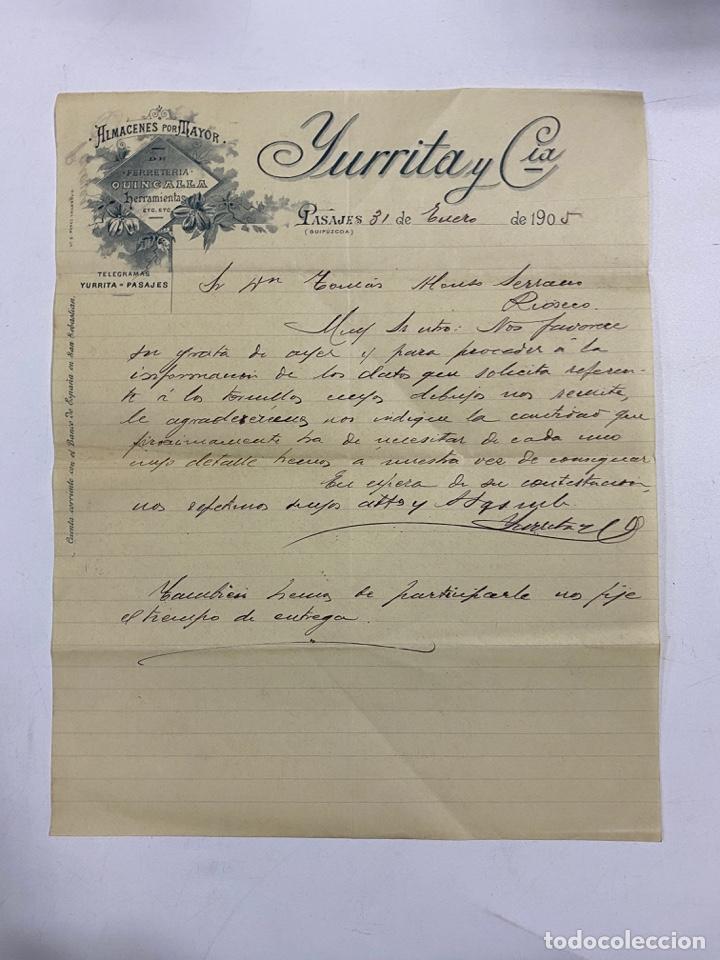 ALMACENES POR MAYOR
DE
FERRETERIA
QUINCALLA
herramientas
ETC. ETC.
TELEGRAMAS
YURRITA - PASAJES
Yurrita y Cia
PASAJES 31 de Enero de 1905
(GUIPÚZCOA)
Cuenta corriente con el Banco de España en San Sebastian.
Sr Dn Tomás Alonso Serrano
Rioseco.
Muy Sr ntro: Nos favorece
su grata de ayer y para proceder á la
informacion de los datos que solicita referen-
te á los tornillos cuyos dibujos nos remite,
le agradeceriamos nos indique la cantidad que
proximamente ha de necesitar de cada uno
cuyo detalle hemos a nuestra vez de consignar
En espera de su contestacion
nos repetimos suyos attos y
Yurrita y Cª
Tambien hemos de participarle nos fije
el tiempo de entrega.
todocoleccion
todocoleccion.net